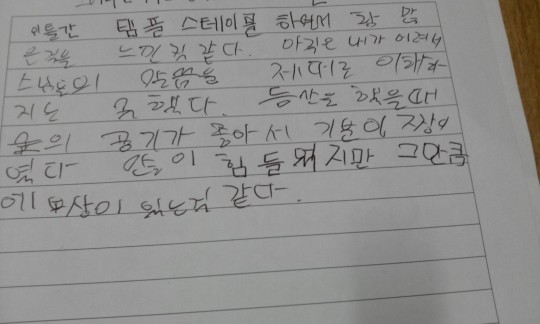 이틀간 템플 스테이를 하면서 참 많
은것을 느낀것 같다. 아직은 내가 어려서
스님들의 말씀을 제대로 이해하
지는 못했다. 등산을 했을때
의 공기가 좋아서 기분이 최상이
였다 많이 힘들었지만 그만큼
에 보상이 있는것 같다.